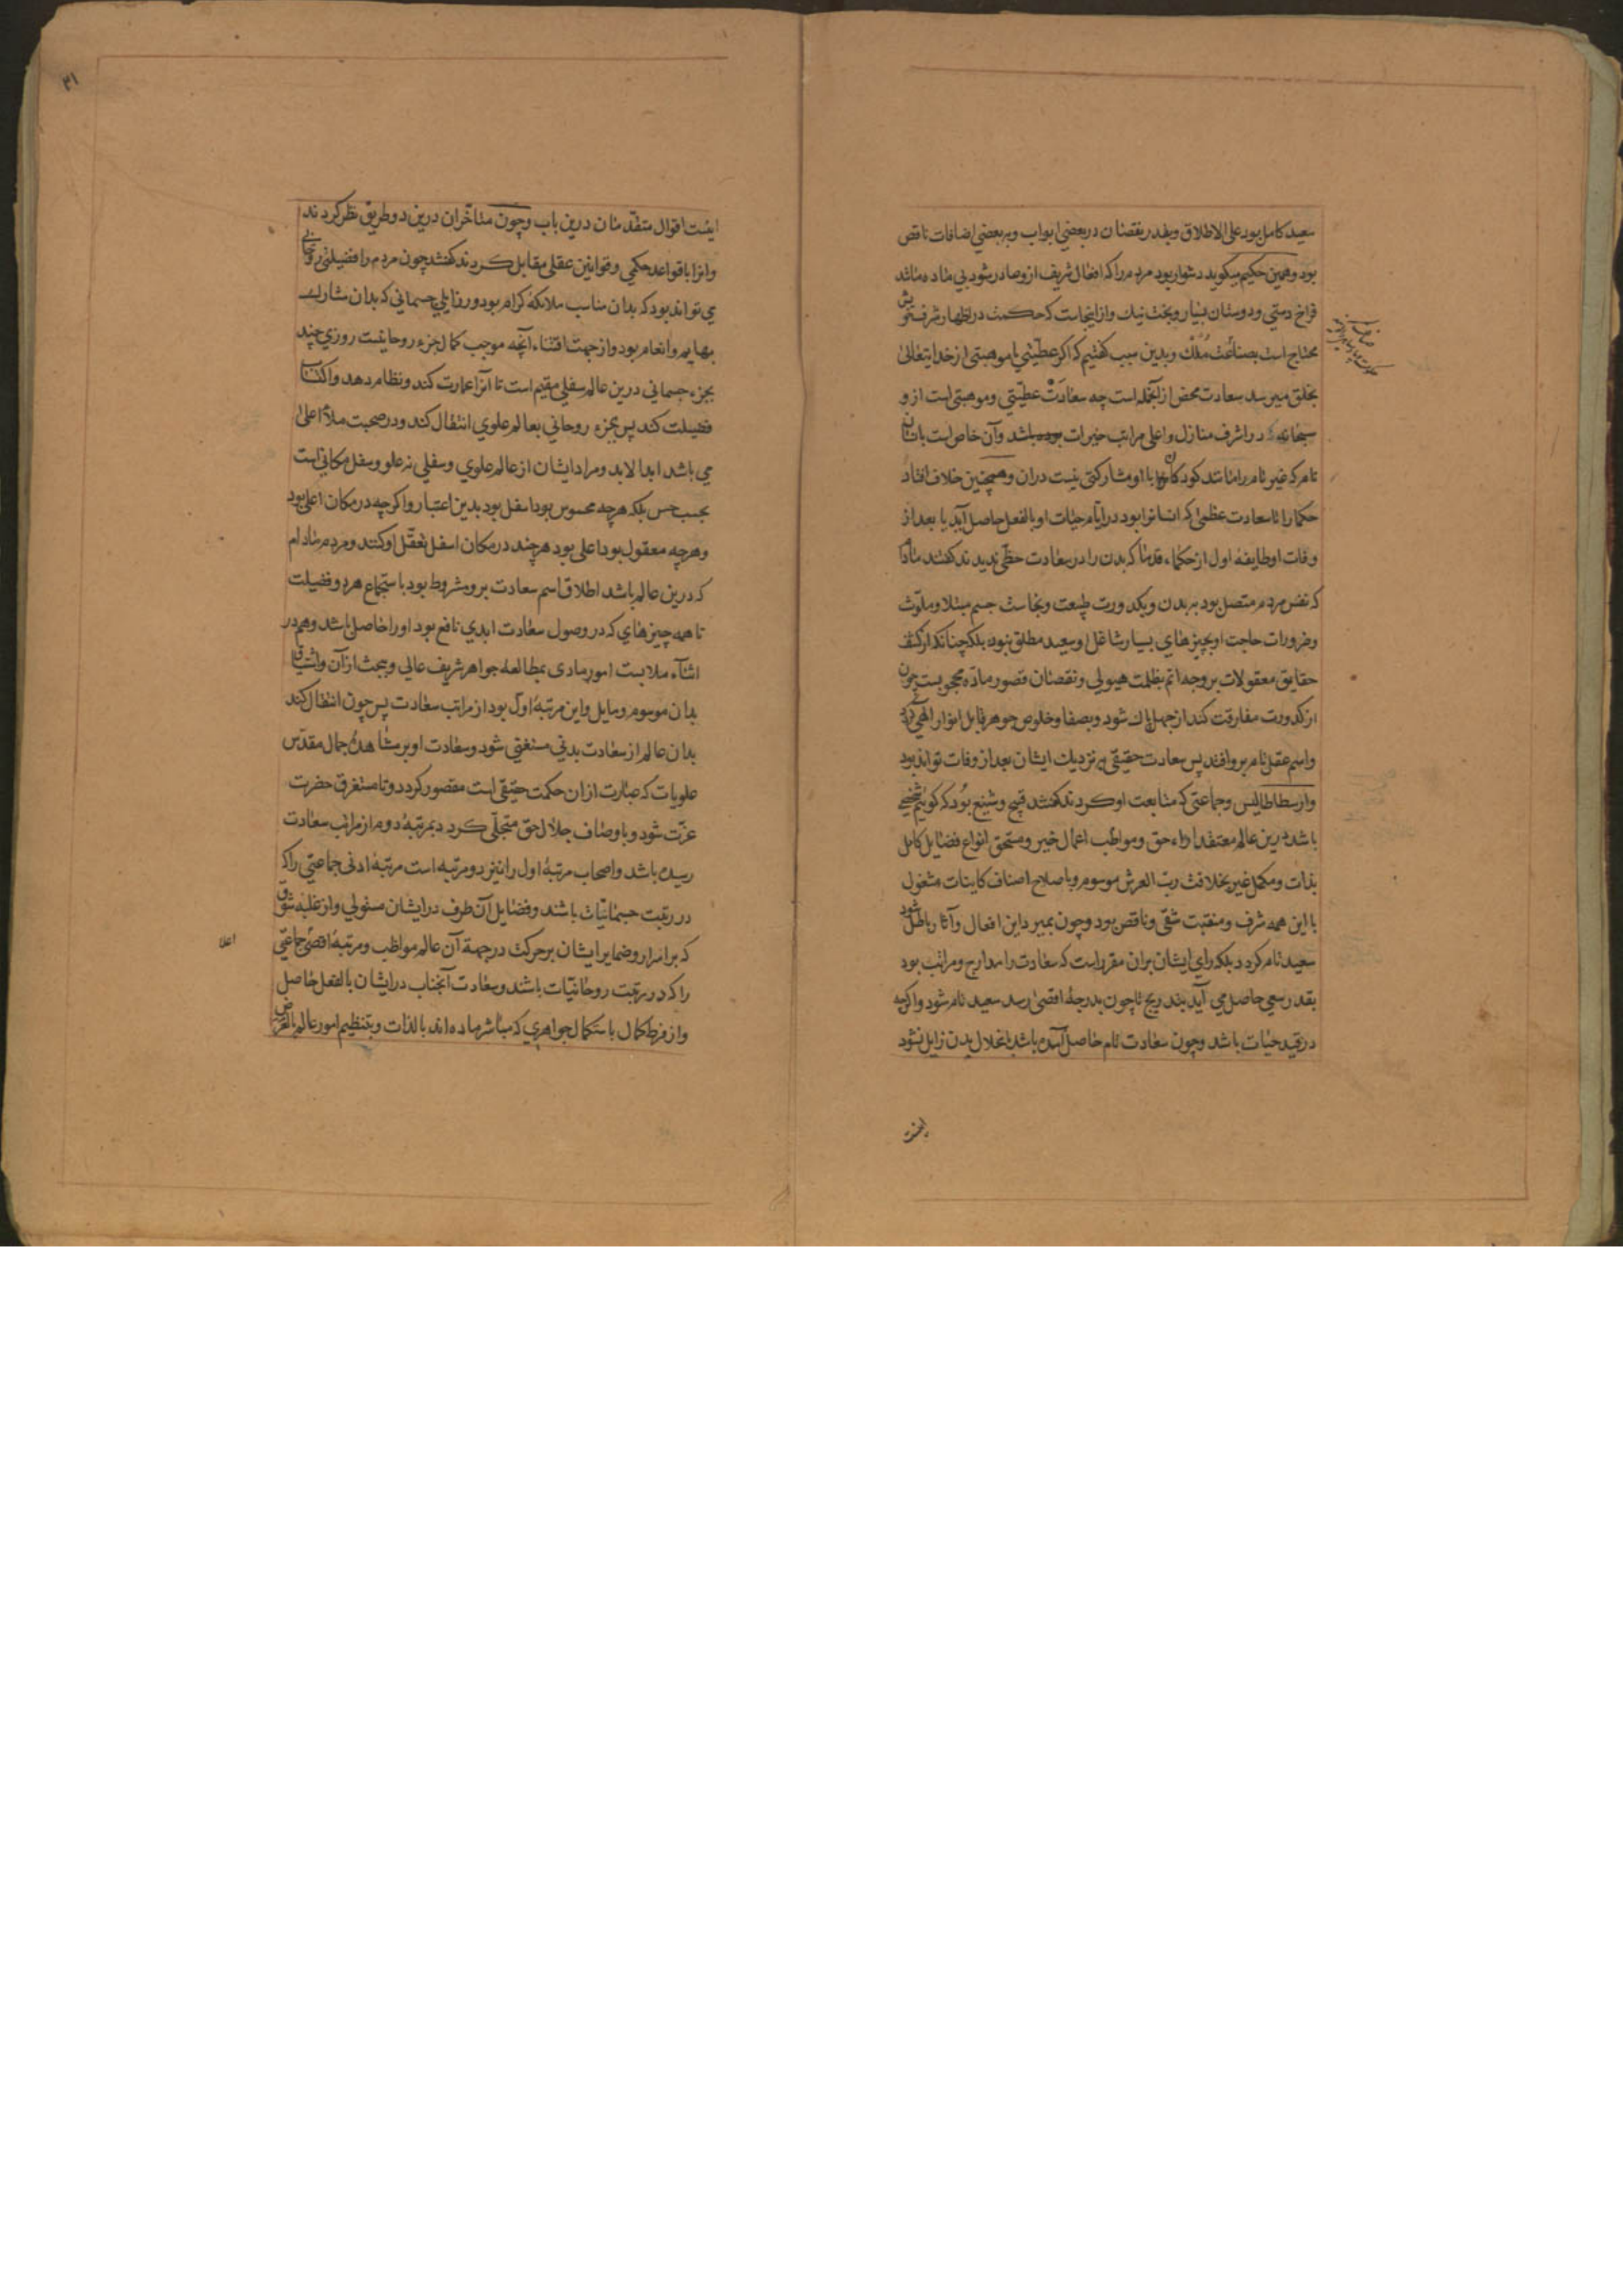 سعید کامل بود علی الاطلاق و بقدر نقصان در بعضی ابواب و بر بعضی اضافات ناقص
بود و همین حکیم میکوید دشوار بود مردم را که افعال شریف ازو صادر شود بی ماده مانند
فراخ دستی و دوستان بسیار و بخت نیک و از اینجاست که حکمت در اظهار شرف خویش
محتاج است بصناعت ملک و بدین سبب کفتیم که اکر عطیتی یا موهبتی از خدایتعالی
بخلق میرسد سعادت محض از آنجمله است چه سعادت عطیتی و موهبتی است ازو
سبحانه در اشرف منازل و اعلی مراتب خیرات باشد و آن خاص است بانسان
تام که غیر تام را مانند کودکان با او مشارکتی نیست دران و همچنین خلاف افتاد
حکما را تا سعادت عظمی که انسانرا بود در ایام حیات او بالفعل حاصل آید یا بعد از
وفات او طایفه اول از حکماء قدما که بدن را در سعادت حظی ندیدند کفتند مادام
که نفس مردم متصل بود ببدن و بکدورت طبیعت و نجاست جسم مبتلا و ملوث
و ضرورات حاجت او بچیزهای بسیار شاغل او سعید مطلق نبود بلکه چنانکه از کشف
حقایق معقولات بر وجه اتم بظلمت هیولی و نقصان قصور ماده محجوبست چون
از کدورت مفارقت کند از جهل پاک شود و بصفا و خلوص جوهر قابل انوار الهی کردد
و اسم عقل تام برو افتد پس سعادت حقیقی نزدیک ایشان بعد از وفات تواند بود
و ارسطاطالیس و جماعتی که متابعت او کردند کفتند قبیح و شنیع بود که کوییم شخصی
باشد درین عالم معتقد اراء حق و مواظب اعمال خیر و مستحق انواع فضایل کامل
بذات و مکمل غیر بخلافت رب العرش موسوم و باصلاح اصناف کاینات مشغول
با این همه شرف و منقبت شقی و ناقص بود و چون بمیرد این افعال و آثار باطل شود
سعید تام کردد بلکه رای ایشان بران مقرر است که سعادت را مدارج و مراتب بود
بقدر سعی حاصل می آید بتدریج تا چون بدرجه اقصی رسد سعید تام شود و اکرچه
در قید حیات باشد و چون سعادت تام حاصل آمده باشد بانحلال بدن زایل نشود
اینست
۳۱
اینست اقوال متقدمان درین باب و چون متاخران درین دو طریق نظر کردند
و انرا با قواعد حکمی و قوانین عقلی مقابل کردند کفتند چون مردم را فضیلتی روحانی
می تواند بود که بدان مناسب ملائکه کرام بود و رذایلی جسمانی که بدان مشارک
بهایم و انعام بود و از جهت اقتناء آنچه موجب کمال جزء روحانیست روزی چند
بجزء جسمانی درین عالم سفلی مقیم است تا آنرا عمارت کند و نظام دهد و اکتساب
فضیلت کند پس بجزء روحانی بعالم علوی انتقال کند و در صحبت ملأ اعلی
می باشد ابدا لابد و مراد ایشان از عالم علوی و سفلی نه علو و سفل مکانی است
بحسب حس بلکه هرچه محسوس بود اسفل بود بدین اعتبار و اکرچه در مکان اعلی بود
و هرچه معقول بود اعلی بود هرچند در مکان اسفل تعقل او کنند و مردم مادام
که درین عالم باشد اطلاق اسم سعادت برو مشروط بود باستجماع هر دو فضیلت
تا همه چیزهای که در وصول سعادت ابدی نافع بود او را حاصل باشد و هم در
اثناء ملابست امور مادی بمطالعه جواهر شریف عالی و بحث از آن و اشتیاق
بدان موسوم و مایل و این مرتبه اول بود از مراتب سعادت پس چون انتقال کند
بدان عالم از سعادت بدنی مستغنی شود و سعادت او بر مشاهده جمال مقدس
علویات که عبارت از ان حکمت حقیقی است مقصور کردد و تا مستغرق حضرت
عزت شود و باوصاف جلال حق متجلی کردد بمرتبه دوم از مراتب سعادت
رسیده باشد و اصحاب مرتبه اول را نیز دو مرتبه است مرتبه ادنی جماعتی را که
در رتبت جسمانیات باشند و فضایل آن طرف در ایشان مستولی و از غلبه شوق
که بر اسرار و ضمایر ایشان بر حرکت در جهة آن عالم مواظب و مرتبه اقصی جماعتی
اعلا
را که در رتبت روحانیات باشند و سعادت آنجناب در ایشان بالفعل حاصل
و از فرط کمال باستکمال جواهری که مباشر ماده اند بالذات و بتنظیم امور عالم بالعرض